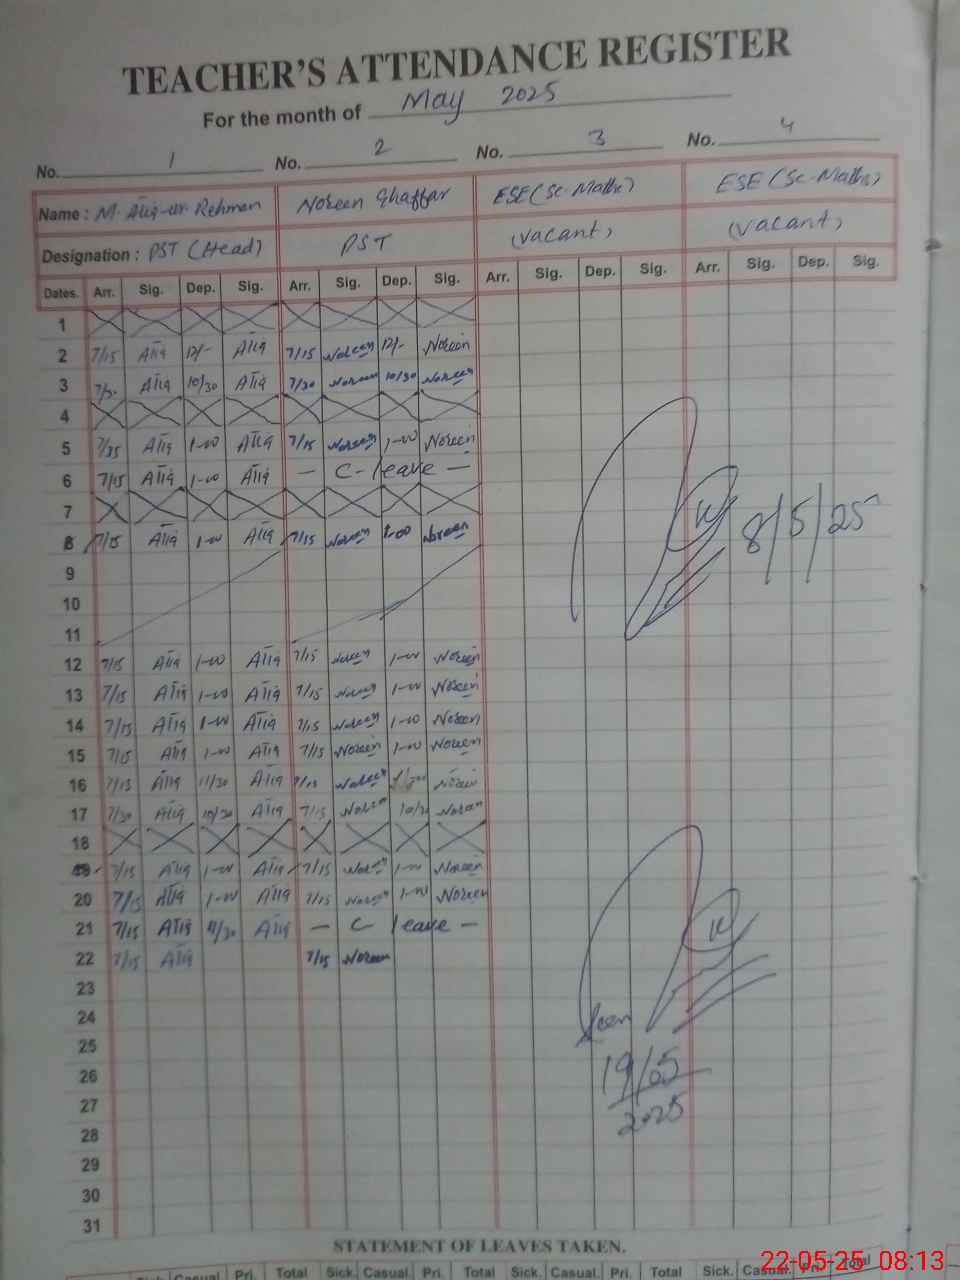 TEACHER'S ATTENDANCE REGISTER
For the month of May 2025
No. 1 No. 2 No. 3 No. 4
Name : M. Atiq-ur-Rehman Noreen Ghaffar ESE (Sc-Maths) ESE (Sc-Maths)
Designation : PST (Head) PST (Vacant) (Vacant)
Dates. Arr. Sig. Dep. Sig. Arr. Sig. Dep. Sig. Arr. Sig. Dep. Sig. Arr. Sig. Dep. Sig.
1
2 7/15 Atiq 12/- Atiq 7/15 Noreen 12/- Noreen
3 7/30 Atiq 10/30 Atiq 7/30 Noreen 10/30 Noreen
4
5 Atiq 1-00 Atiq 7/15 Noreen 1-00 Noreen
6 7/15 Atiq 1-00 Atiq — C-leave —
7
8 7/15 Atiq 1-00 Atiq 7/15 Noreen 1-00 Noreen
8/5/25
9
10
11
12 7/15 Atiq 1-00 Atiq 7/15 Noreen 1-00 Noreen
13 7/15 Atiq 1-00 Atiq 7/15 Noreen 1-00 Noreen
14 7/15 Atiq 1-00 Atiq 7/15 Noreen 1-00 Noreen
15 7/15 Atiq 1-00 Atiq 7/15 Noreen 1-00 Noreen
16 7/15 Atiq 11/30 Atiq 7/15 Noreen Noreen
17 7/30 Atiq 10/30 Atiq 7/15 Noreen 10/30 Noreen
18
19 7/15 Atiq 1-00 Atiq 7/15 Noreen 1-00 Noreen
20 7/15 Atiq 1-00 Atiq 7/15 Noreen 1-00 Noreen
21 7/15 Atiq 11/30 Atiq — C leave —
22 7/15 Atiq 7/15 Noreen
23
24
Seen
25
26
19/05
27
2025
28
29
30
31
STATEMENT OF LEAVES TAKEN.
Sick. Casual. Pri. Total Sick. Casual. Pri. Total Sick. Casual. Pri. Total Sick. Casual. Pri. Total
22-05-25 08:13